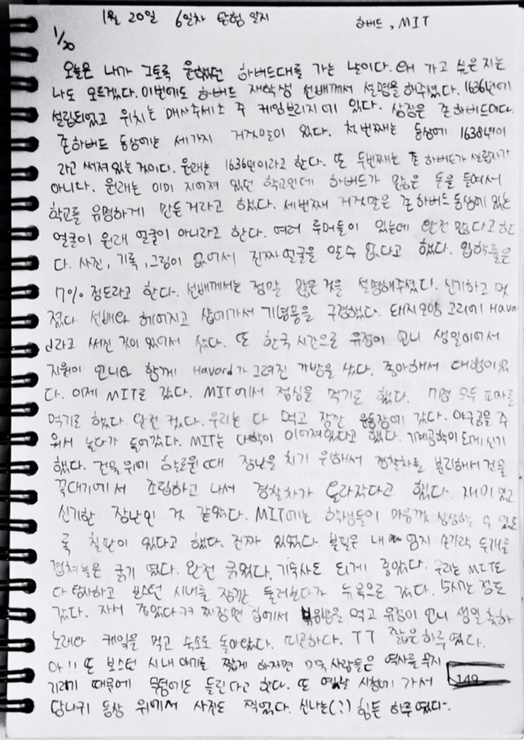 1월 20일 6일차 운형 일지 하버드, MIT
1/20
오늘은 내가 그토록 원했던 하버드대를 가는 날이다. 왜 가고 싶은지는
나도 모르겠다. 이번에도 하버드 재학생 선배께서 설명을 해주셨다. 1636년에
설립되었고 위치는 매사추세스 주 케임브리지에 있다. 상징은 존하버드이다.
존하버드 동상에는 세가지 거짓이 있다. 첫번째는 동상에 1638년이
라고 써져있는것이다. 원래는 1636년이라고 한다. 또 두번째는 존 하버드가 설립자가
아니다. 원래는 이미 지어져 있던 학교인데 하버드가 많은 돈을 들여서
학교를 유명하게 만든거라고 했다. 세번째 거짓말은 존하버드동상에 있는
얼굴이 원래 얼굴이 아니라고 한다. 여러 루머들이 있는데 안전 없다고 한
다. 사진, 기록, 그림이 없어서 진짜 얼굴을 알수 없다고 했다. 입학률은
7% 정도라고 한다. 선배께서는 정말 많은 것을 설명해주셨다. 신기하고 멋
졌다 선배와 헤어지고 샵에가서 기념품을 구경했다. 돼지 모양 고리에 Havar
d라고 써진 것이 있어서 샀다. 또 한국 시간으로 유정이 언니 생일이어서
지원이 언니와 함께 Havard가 그려진 가방을 샀다. 좋아해서 다행이었
다. 이제 MIT로 갔다. MIT에서 점심을 먹기로 했다. 7명 모두 피자를
먹기로 했다 완전 컸다. 우리는 다 먹고 잠깐 운동장에 갔다. 야구공을 주
워서 놀다가 들어갔다. MIT는 다 이어져있다고 했다. 기계공학이
했다. 건물위에 할로윈 때 장난을 치기 위해서 경찰차를 분리해서 건물
꼭대기에서 조립하고 나서 경찰차가 올라갔다고 했다. 재미있고
신기한 장난인 거 같았다. MIT에는 학생들이 마음껏 상상할 수 있도
록 칠판이 있다고 했다. 진짜 있었다. 분필은 내 엄지 손가락 두개를
겹쳐놓은 굵기 였다. 완전 굵었다. 기숙사도 되게 좋았다. 우리는 MIT도
다 탐사하고 보스턴 시내를 잠깐 둘러보다가 뉴욕으로 갔다. 5시간 정도
갔다. 자서 좋았다ㅋㅋ 짜장면 집에서 볶음밥을 먹고 유정이 언니 생일 축하
노래와 케익을 먹고 숙소로 돌아왔다. 피곤하다. TT 짧은 하루였다.
아!! 또 보스턴 시내 얘기도 짧게 하자면 미국 사람들은 역사를
기리기 때문에 무덤에도 들린다고 한다. 또 옛날 시청에 가서
당나귀 동상 위에서 사진도 찍었다. 신나는(?) 힘든 하루였다~.
149